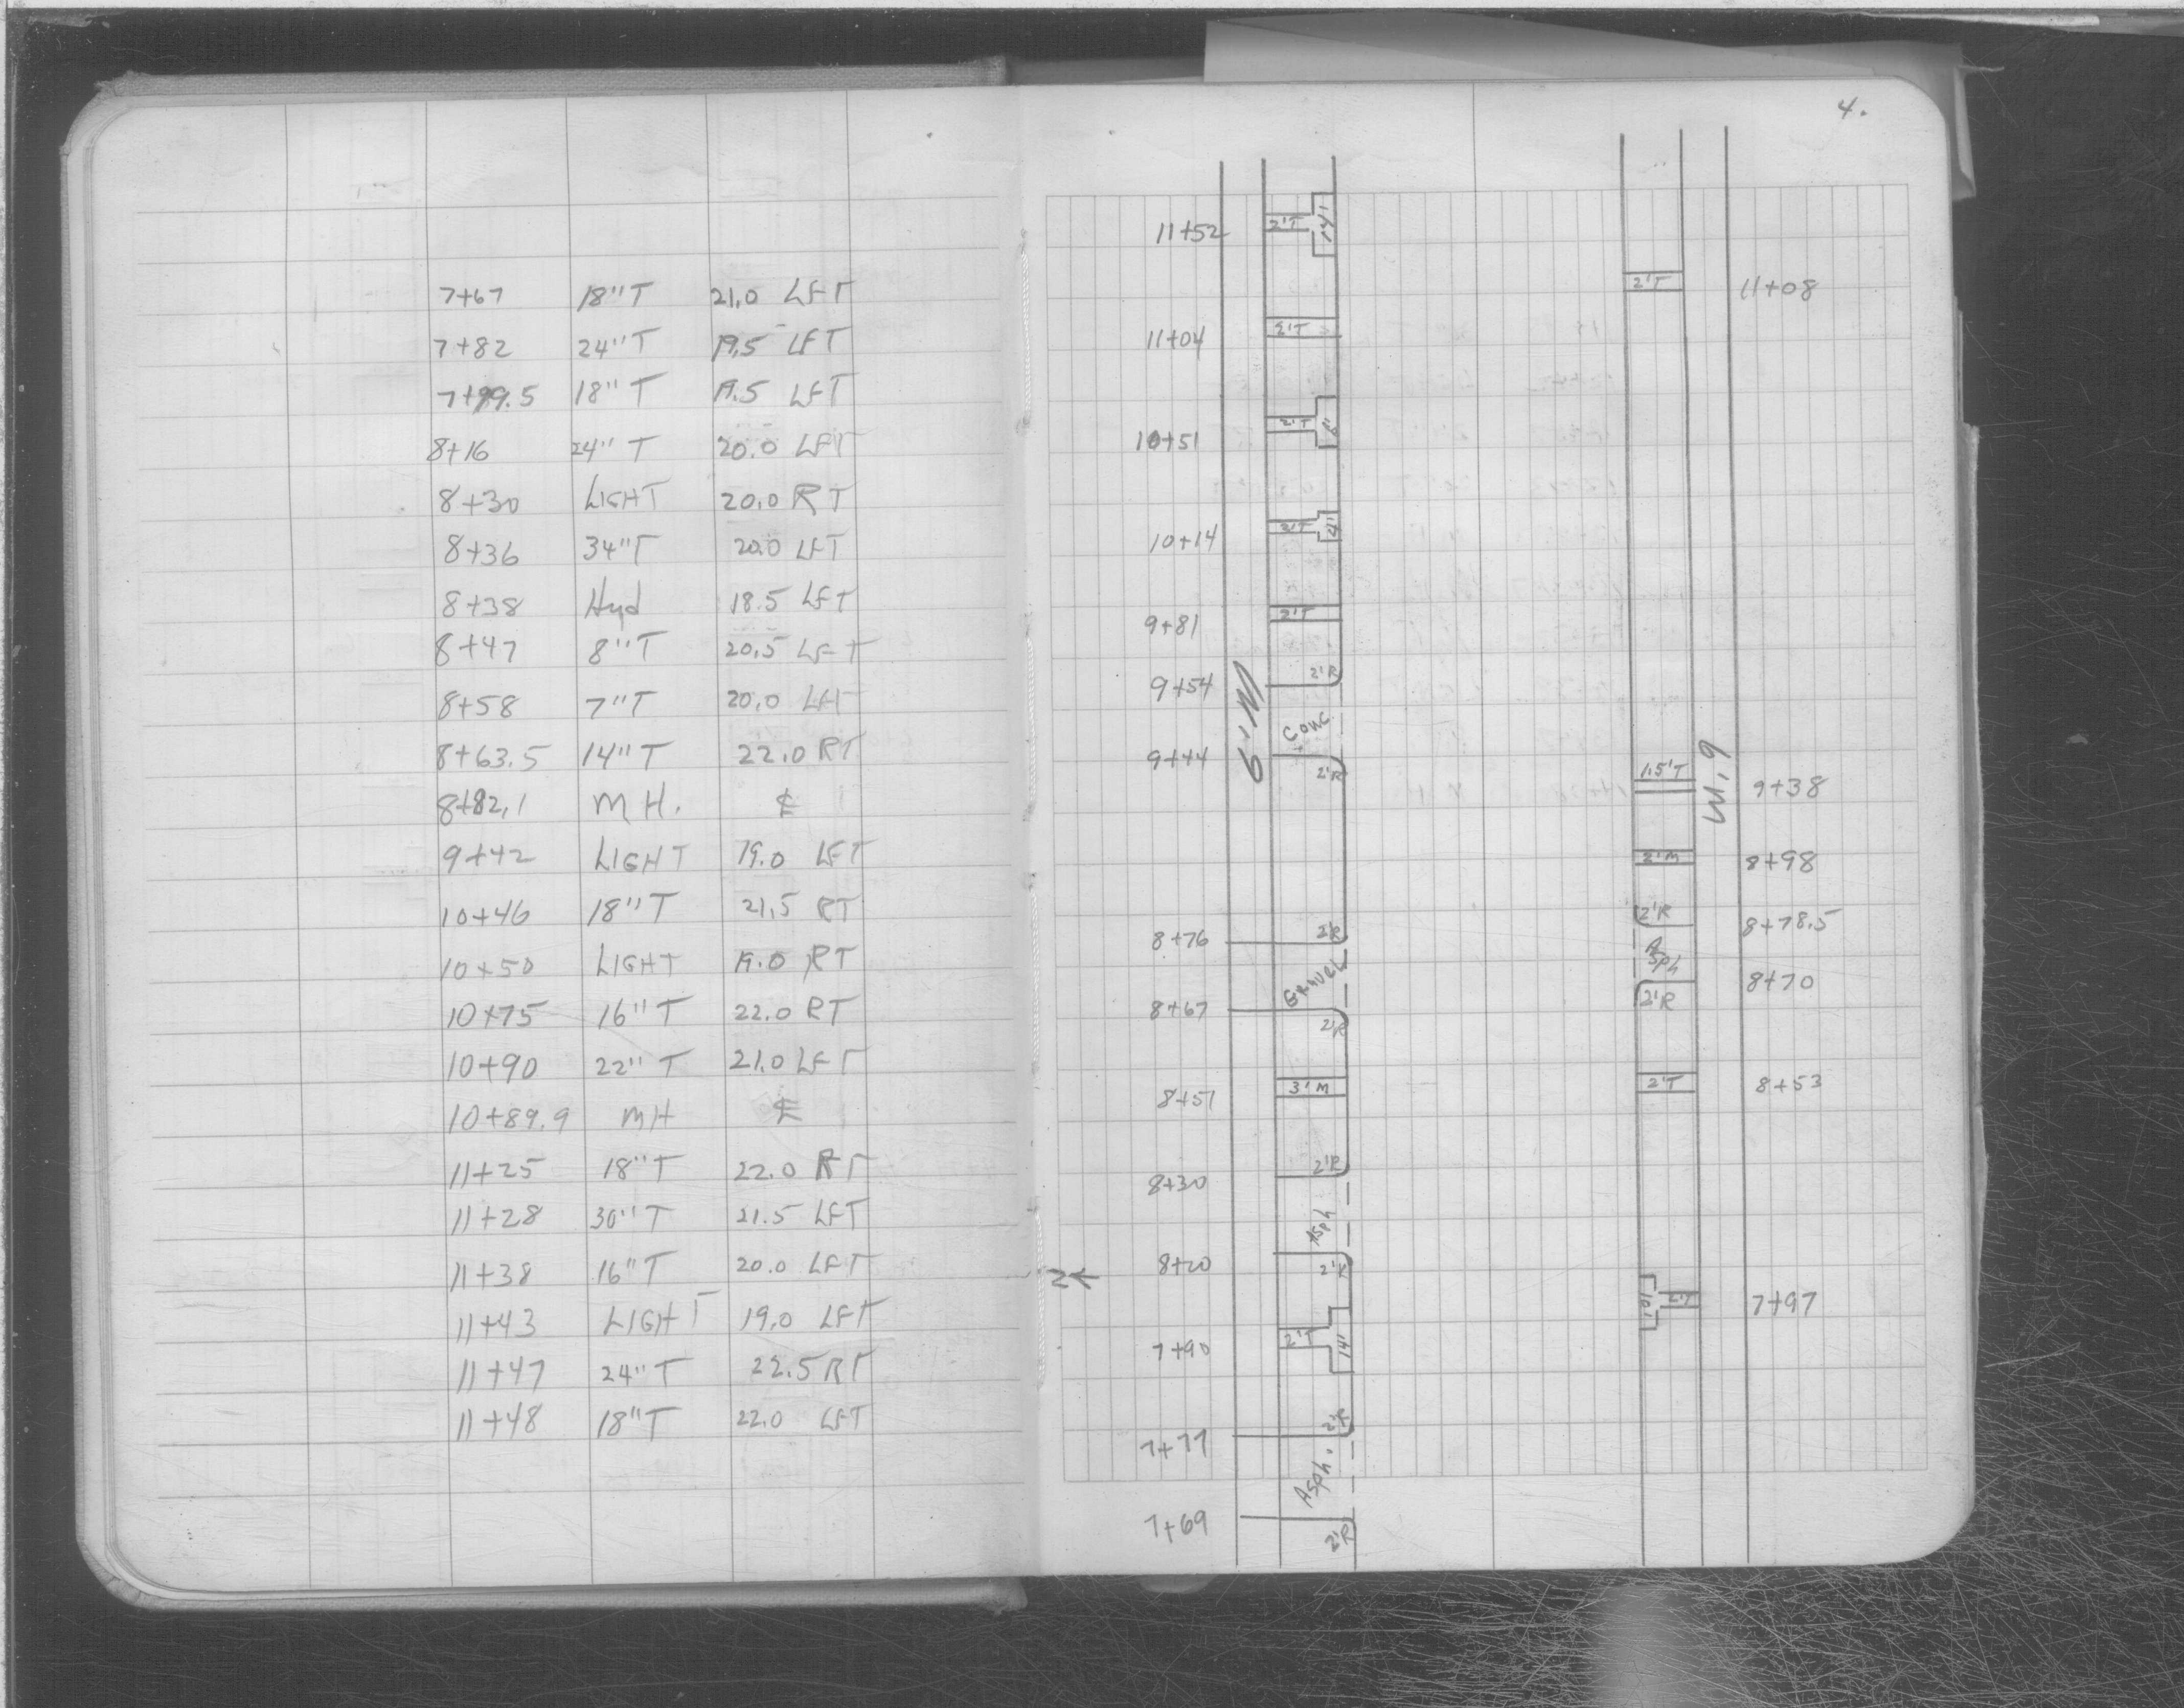 4.
7+67 18"T 21.0 LFT
7+82 24"T 19.5 LFT
7+99.5 18"T 19.5 LFT
8+16 24"T 20.0 LFT
8+30 LIGHT 20.0 RT
8+36 34"T 20.0 LFT
8+38 Hyd 18.5 LFT
8+47 8"T 20.5 LFT
8+58 7"T 20.0 LFT
8+63.5 14"T 22.0 RT
8+82.1 MH. ℄
9+42 LIGHT 19.0 LFT
10+46 18"T 21.5 RT
10+50 LIGHT 19.0 RT
10+75 16"T 22.0 RT
10+90 22"T 21.0 LFT
10+89.9 MH ℄
11+25 18"T 22.0 RT
11+28 30"T 21.5 LFT
11+38 16"T 20.0 LFT
11+43 LIGHT 19.0 LFT
11+47 24"T 22.5 RT
11+48 18"T 22.0 LFT
11+52 2'T 14'
2'T 11+08
11+04 2'T
10+51 2'T
10+14 2'T
9+81 2'T
9+54 2'R
Conc.
9+44 2'R
1.5'T 9+38
2'M 8+98
8+76 2'R
2'R 8+78.5
Gravel
Asph
8+67 2'R
2'R 8+70
8+51 3'M
2'T 8+53
8+30 2'R
Asph
8+20 2'R
N
7+90 2'T 14'
10' 2'T 7+97
7+77 2'R
Asph.
7+69 2'R